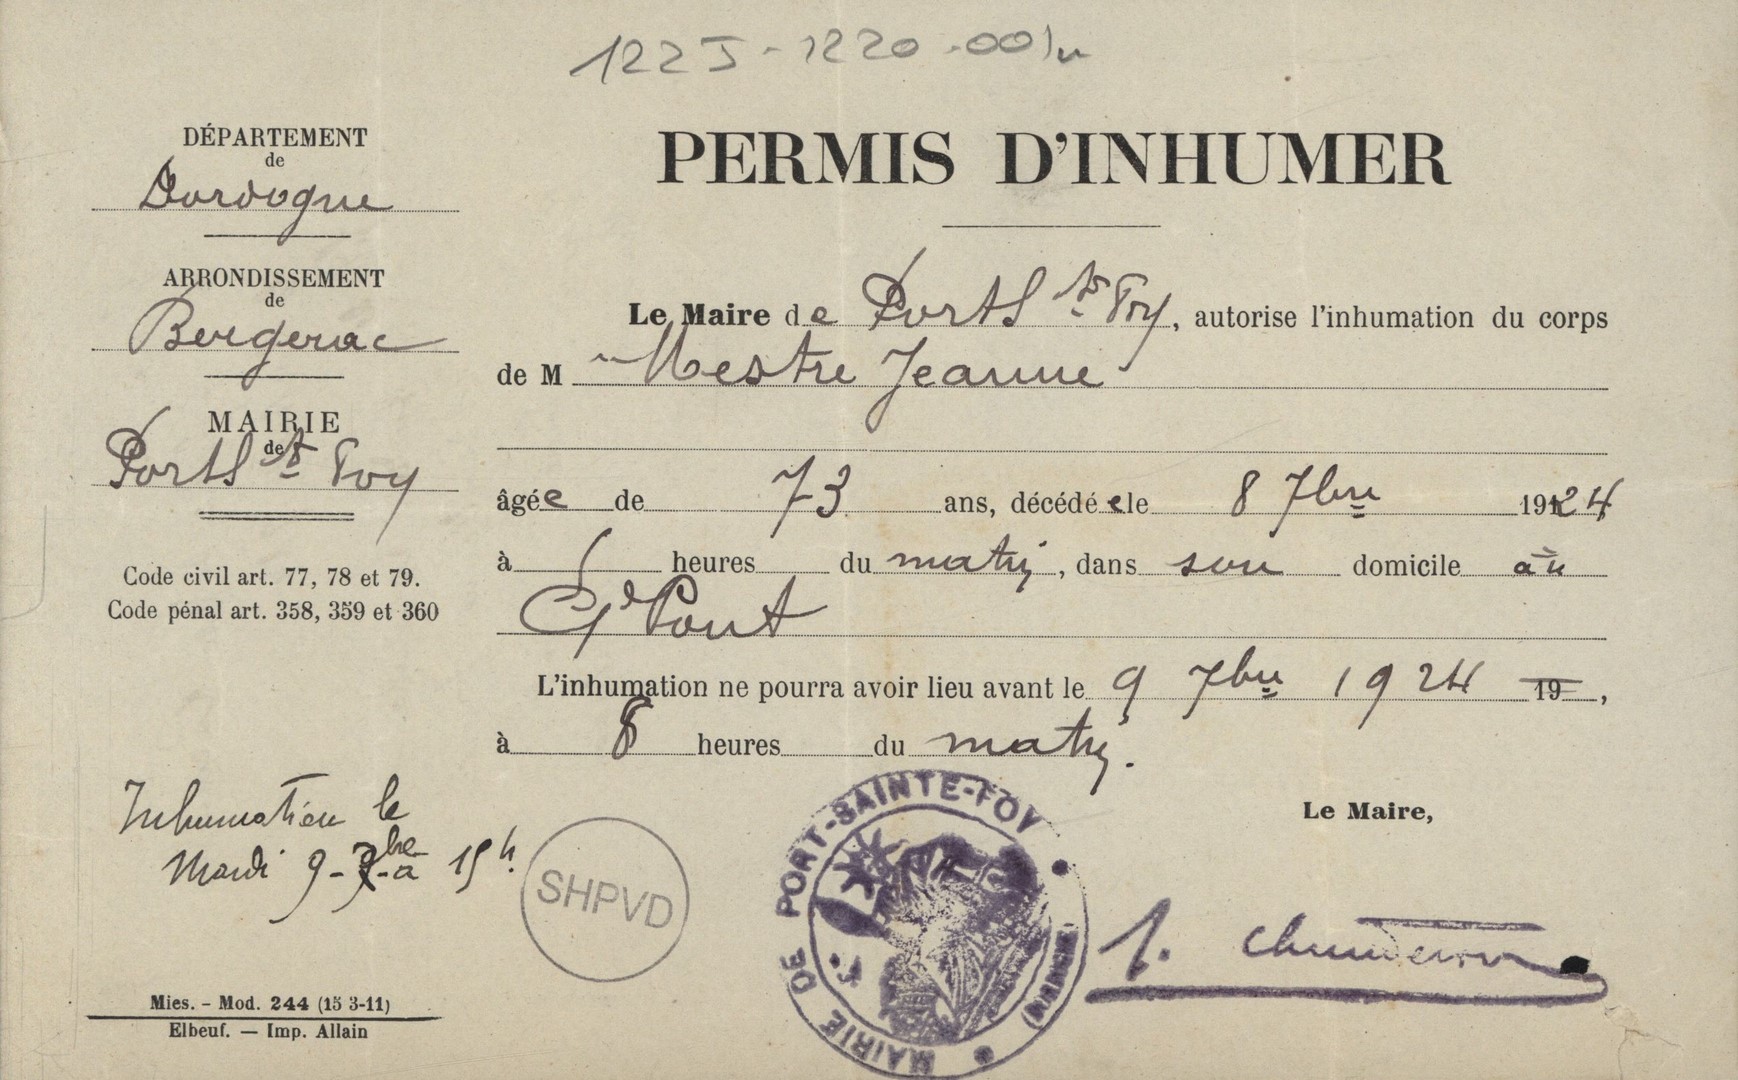 1225-1220-001
DÉPARTEMENT
de
Dordogne
ARRONDISSEMENT
de
Bergerac
MAIRIE
de
Port Ste Foy
Code civil art. 77, 78 et 79.
Code pénal art. 358, 359 et 360
PERMIS D'INHUMER
Le Maire de Port Ste Foy, autorise l'inhumation du corps
de M Mestre Jeanne
âgée de 73 ans, décédée le 8 7bre 1924
à heures du matin, dans son domicile au
Gd Pont
L'inhumation ne pourra avoir lieu avant le 9 7bre 1924 19 ,
à 8 heures du matin.
Le Maire,
Inhumation le
Mardi 9-7bre à 15h.
SHPVD
MAIRIE DE PORT-SAINTE-FOY
Mies. - Mod. 244 (15 3-11)
Elbeuf. — Imp. Allain